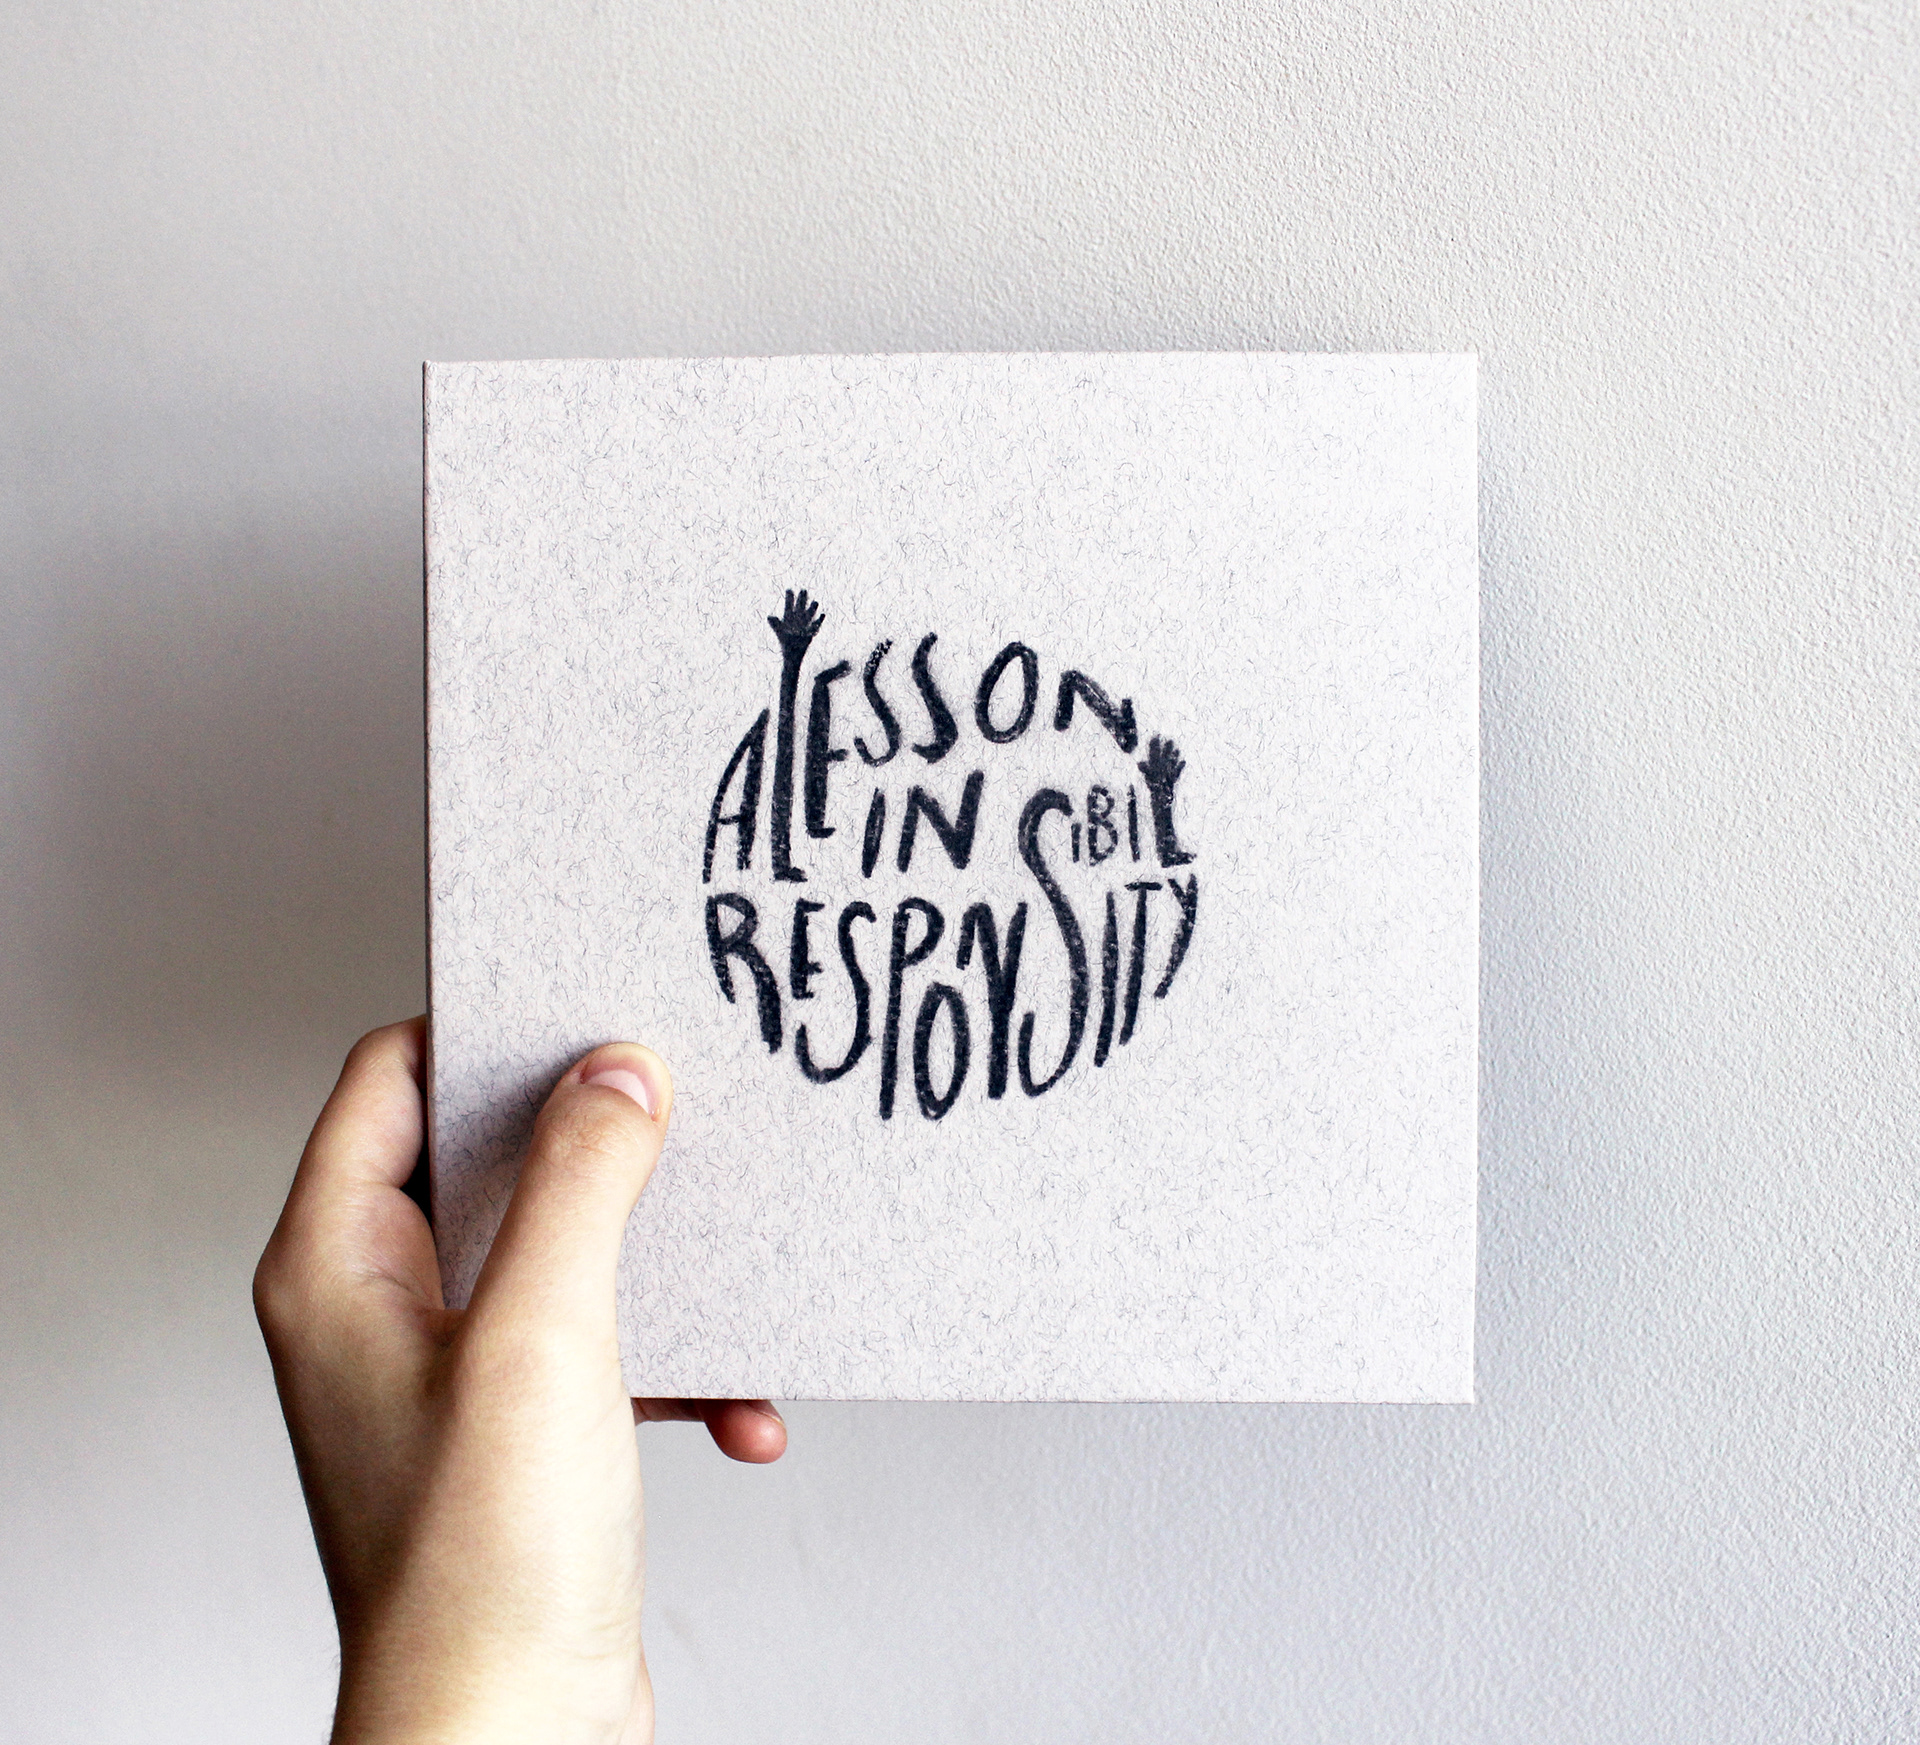 A LESSON
IN
RESPONSIBILITY